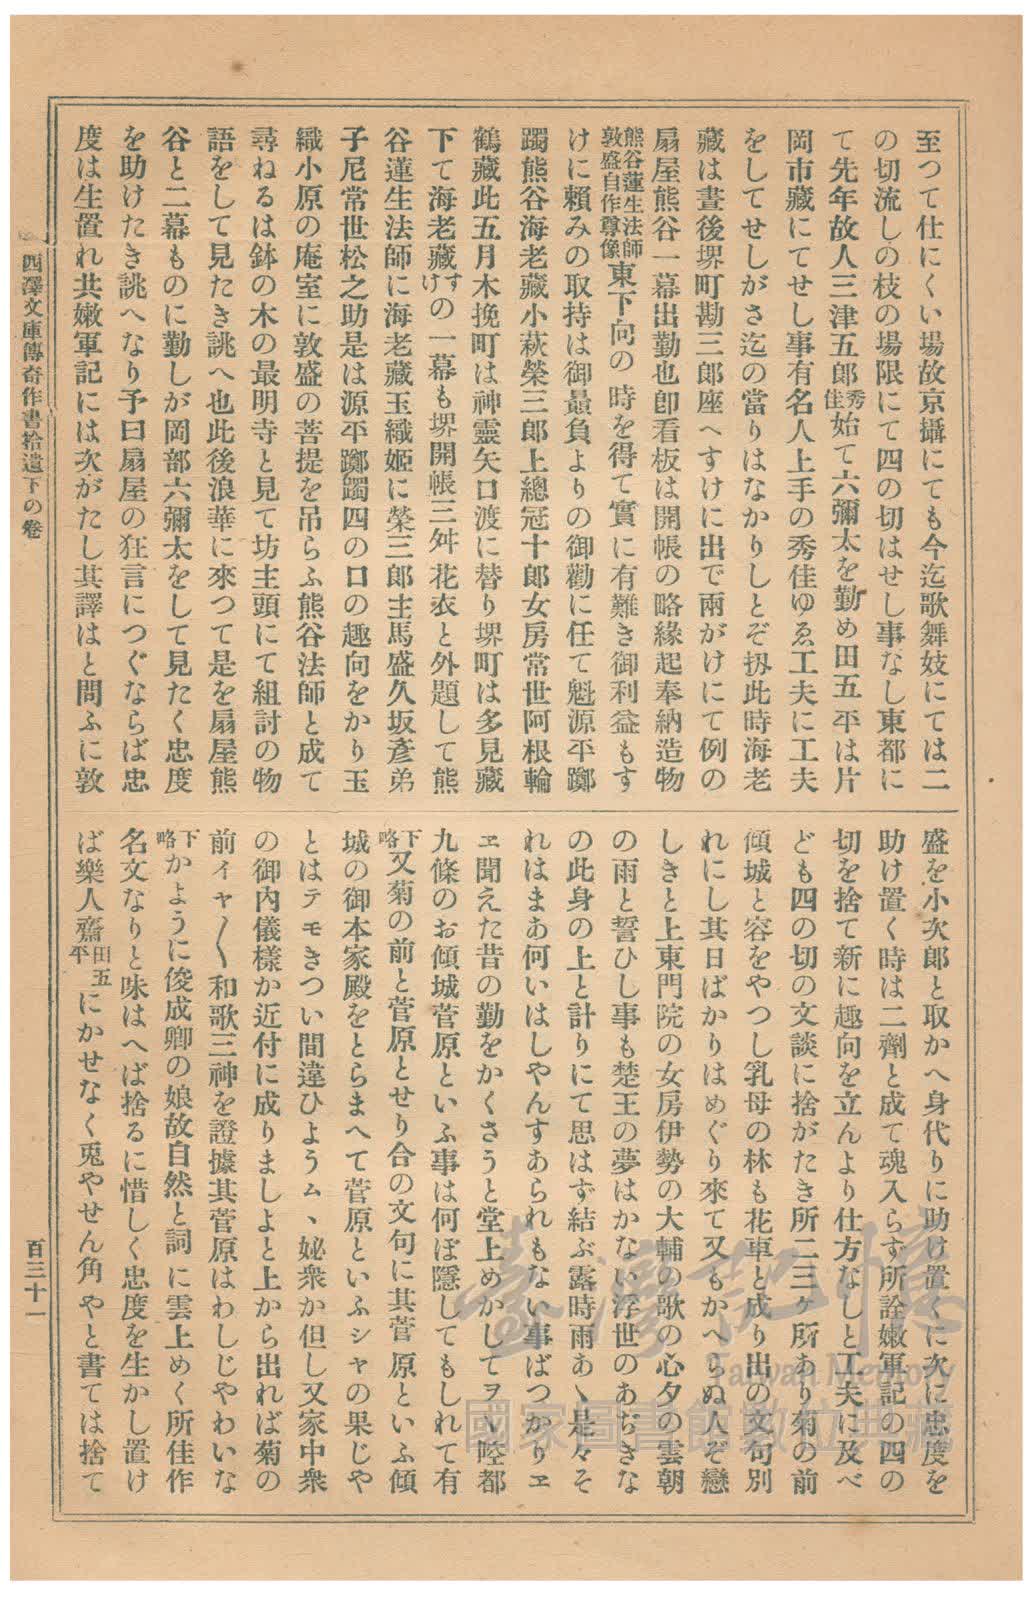 至つて仕にくい場故京攝にても今迄歌舞妓にては二
の切流しの枝の場限にて四の切はせし事なし東都に
て先年故人三津五郎秀佳始て六彌太を勤め田五平は片
岡市藏にてせし事有名人上手の秀佳ゆゑ工夫に工夫
をしてせしがさ迄の當りはなかりしとぞ扨此時海老
藏は晝後堺町勘三郎座へすけに出で兩がけにて例の
扇屋熊谷一幕出勤也卽看板は開帳の略緣起奉納造物
熊谷蓮生法師敦盛自作尊像東下向の時を得て實に有難き御利益もす
けに賴みの取持は御贔負よりの御勸に任て魁源平躑
躅熊谷海老藏小萩榮三郎上總冠十郎女房常世阿根輪
鶴藏此五月木挽町は神靈矢口渡に替り堺町は多見藏
下て海老藏すけの一幕も堺開帳三舛花衣と外題して熊
谷蓮生法師に海老藏玉織姬に榮三郎主馬盛久坂彥弟
子尼常世松之助是は源平躑躅四の口の趣向をかり玉
織小原の庵室に敦盛の菩提を吊らふ熊谷法師と成て
尋ねるは鉢の木の最明寺と見て坊主頭にて組討の物
語をして見たき誂へ也此後浪華に來つて是を扇屋熊
谷と二幕ものに勤しが岡部六彌太をして見たく忠度
を助けたき誂へなり予曰扇屋の狂言につぐならば忠
度は生置れ共嫩軍記には次がたし其譯はと問ふに敦
盛を小次郎と取かへ身代りに助け置くに次に忠度を
助け置く時は二劑と成て魂入らず所詮嫩軍記の四の
切を捨て新に趣向を立んより仕方なしと工夫に及べ
ども四の切の文談に捨がたき所二三ヶ所あり菊の前
傾城と容をやつし乳母の林も花車と成り出の文句別
れにし其日ばかりはめぐり來て又もかへらぬ人ぞ戀
しきと上東門院の女房伊勢の大輔の歌の心夕の雲朝
の雨と誓ひし事も楚王の夢はかない浮世のあぢきな
の此身の上と計りにて思はず結ぶ露時雨あゝ是々そ
れはまあ何いはしやんすあられもない事ばつかりヱ
ヱ聞えた昔の勤をかくさうと堂上めかしてヲヽ啌都
九條のお傾城菅原といふ事は何ぼ隱してもしれて有
下略又菊の前と菅原とせり合の文句に其菅原といふ傾
城の御本家殿をとらまへて菅原といふシャの果じや
とはテモきつい間違ひようム、妼衆か但し又家中衆
の御內儀樣か近付に成りましよと上から出れば菊の
前イヤ〳〵和歌三神を證據其菅原はわしじやわいな
下略かように俊成卿の娘故自然と詞に雲上めく所佳作
名文なりと味はへば捨るに惜しく忠度を生かし置け
ば樂人齋田五平にかせなく兎やせん角やと書ては捨て
西澤文庫傳奇作書拾遺下の卷
百三十一
臺灣記憶
Taiwan Memory
國家圖書館數位典藏